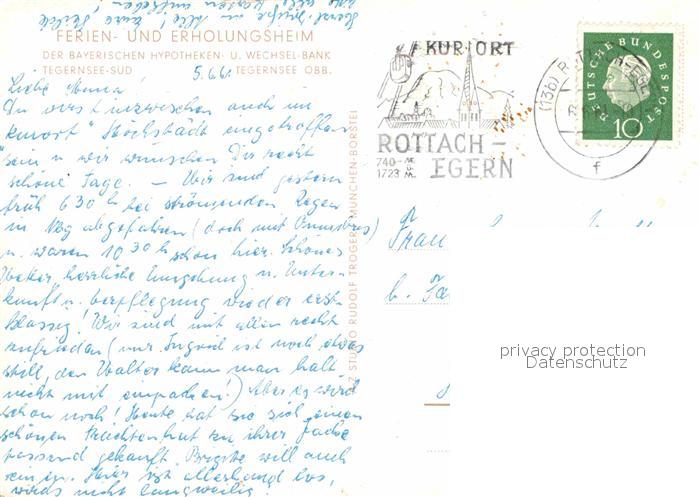 Herzl. Grüße an alle! Eure Hilde
FERIEN- UND ERHOLUNGSHEIM
DER BAYERISCHEN HYPOTHEKEN- U. WECHSEL-BANK
TEGERNSEE-SÜD 5.6.61 TEGERNSEE OBB.
Liebe Mama!
Du wirst inzwischen auch im
"Kurort" Höchstädt eingetroffen
sein u. wir wünschen Dir recht
schöne Tage. – Wir sind gestern
früh 6 30 h bei strömenden Regen
in Nbg abgefahren (doch mit Omnibus)
u. waren 10 30 h schon hier. Schönes
Wetter, herrliche Umgebung u. Unter-
kunft u. Verpflegung wieder erst-
klassig! Wir sind mit allem recht
zufrieden (nur Ingrid ist noch etwas
still, den Walter kann man halt
nicht mit einpacken!) Aber es wird
schon noch! Heute hat sie sich einen
schönen Trachtenhut zu ihrer Jacke
passend gekauft. Brigitte will auch
Hier ist allerhand los,
wirds nicht langweilig.
STUDIO RUDOLF TROGER MÜNCHEN-BORSTEI
KURORT
ROTTACH-
EGERN
740-
1723
(13b) ROTTACH-EGERN
f
DEUTSCHE BUNDESPOST
10
Frau
b.
privacy protection
Datenschutz